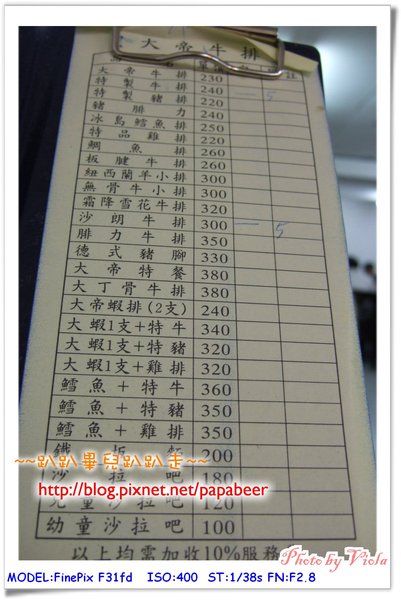 大帝牛排
大帝牛排 230
特製牛排 240
特製豬排 220 一 5
豬腓力 240
冰島鱈魚 250
特品雞排 220
鯛魚 260
板腱牛排 260
紐西蘭羊小排 300
無骨牛小排 300
霜降雪花牛排 320
沙朗牛排 300 一 5
腓力牛排 350
德式豬腳 330
大帝特餐 380
大丁骨牛排 380
大帝蝦排(2支) 240
大蝦1支+特牛 340
大蝦1支+特豬 320
大蝦1支+雞排 320
鱈魚+特牛 360
鱈魚+特豬 350
鱈魚+雞排 350
200
沙拉吧 180
兒童沙拉吧 120
幼童沙拉吧 100
以上均需加收10%服務
~~趴趴畢兒趴趴走~~
http://blog.pixnet.net/papabeer
Photo by Viola
MODEL:FinePix F31fd ISO:400 ST:1/38s FN:F2.8